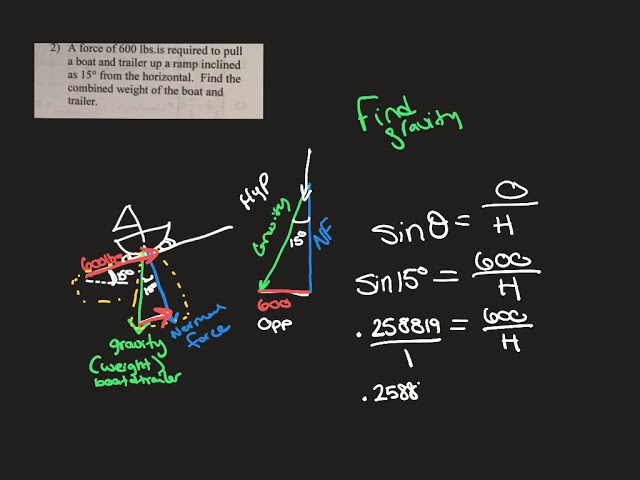 2) A force of 600 lbs.is required to pull
a boat and trailer up a ramp inclined
as 15° from the horizontal. Find the
combined weight of the boat and
trailer.
Find
gravity
Hyp
Gravity
15°
NF
600
opp
600lbs
15°
15°
Normal
force
gravity
(weight)
boat&trailer
sinθ = O/H
sin15° = 600/H
.258819/1 = 600/H
.2588